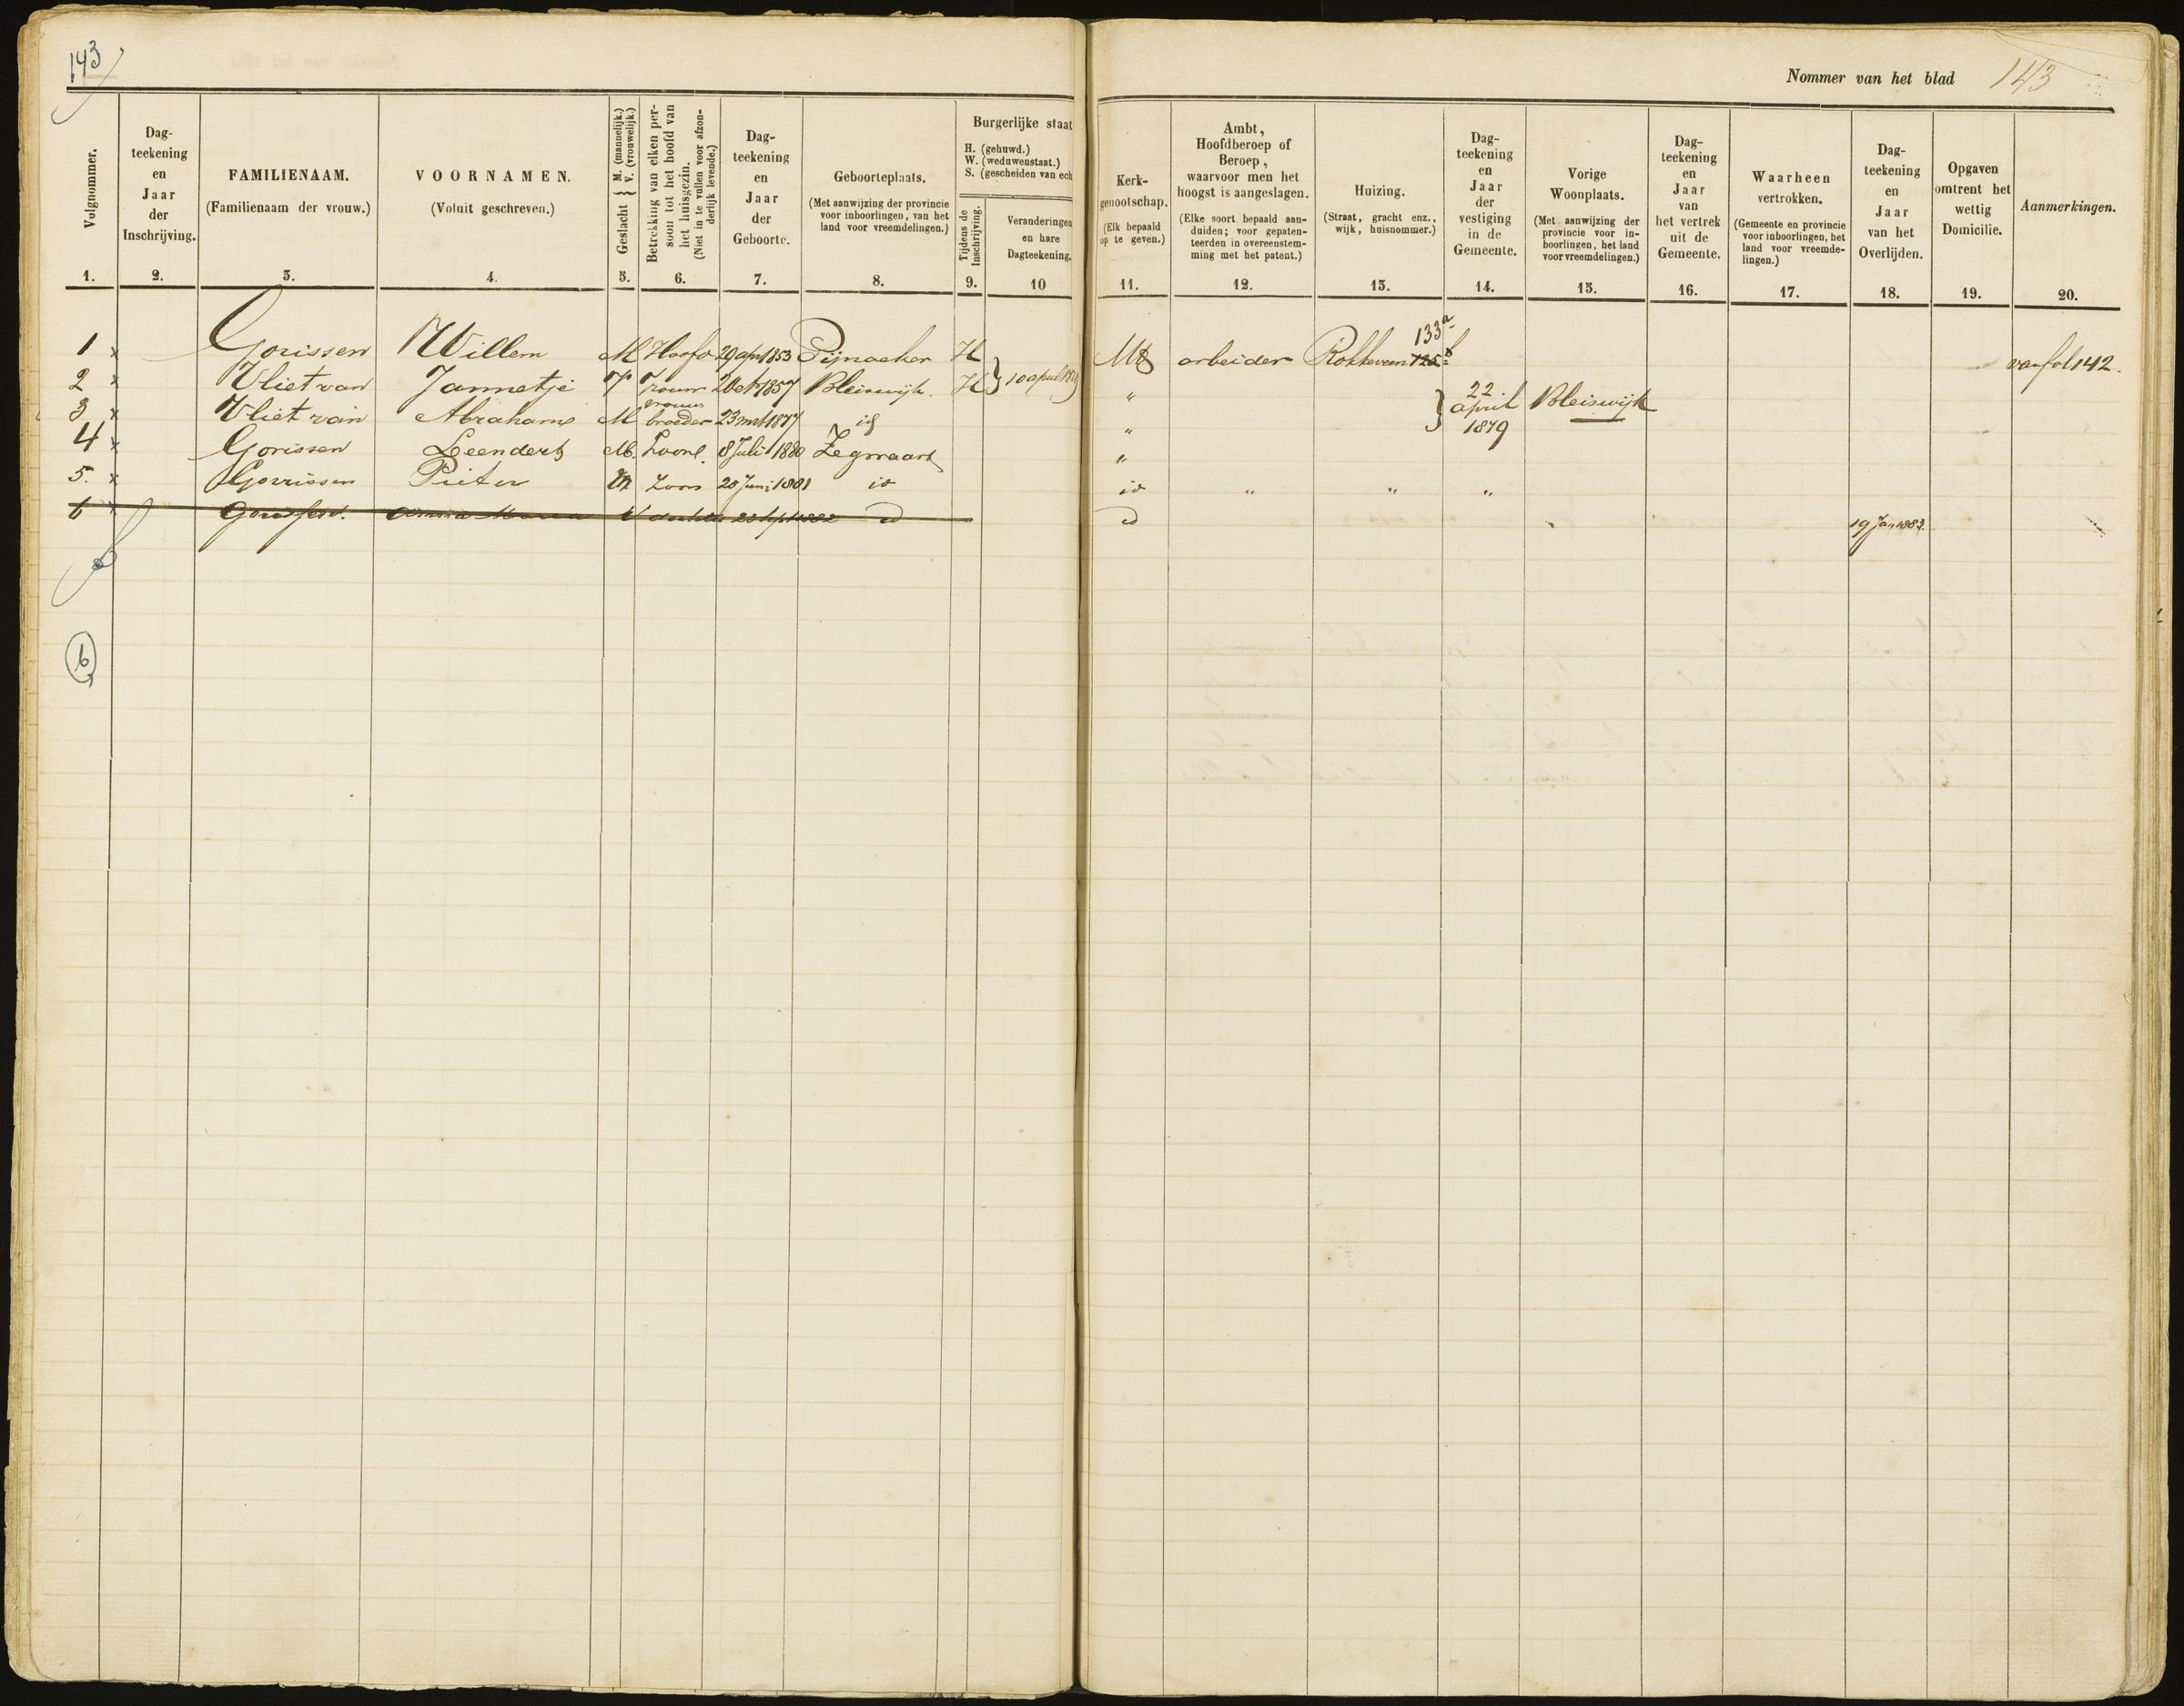 143
Nommer van het blad 143
Volgnommer. Dag-teekening en Jaar der Inschrijving. FAMILIENAAM. (Familienaam der vrouw.) VOORNAMEN. (Voluit geschreven.) Geslacht { M. (mannelijk.) V. (vrouwelijk.) Betrekking van elken persoon tot het hoofd van het huisgezin. (Niet in te vullen voor afzonderlijk levende.) Dag-teekening en Jaar der Geboorte. Geboorteplaats. (Met aanwijzing der provincie voor inboorlingen, van het land voor vreemdelingen.) Burgerlijke staat H. (gehuwd.) W. (weduwenstaat.) S. (gescheiden van ech Tijdens de Inschrijving. Veranderingen en hare Dagteekening.
Kerk-genootschap. (Elk bepaald op te geven.) Ambt, Hoofdberoep of Beroep, waarvoor men het hoogst is aangeslagen. (Elke soort bepaald aanduiden; voor gepatenteerden in overeenstemming met het patent.) Huizing. (Straat, gracht enz., wijk, huisnommer.) Dag-teekening en Jaar der vestiging in de Gemeente. Vorige Woonplaats. (Met aanwijzing der provincie voor inboorlingen, het land voor vreemdelingen.) Dag-teekening en Jaar van het vertrek uit de Gemeente. Waarheen vertrokken. (Gemeente en provincie voor inboorlingen, het land voor vreemdelingen.) Dag-teekening en Jaar van het Overlijden. Opgaven omtrent het wettig Domicilie. Aanmerkingen.
1. 2. 3. 4. 5. 6. 7. 8. 9. 10 11. 12. 13. 14. 15. 16. 17. 18. 19. 20.
1 x Gorissen Willem M Hoofd 29 apr 1853 Pijnacker H arbeider Rokkeveen 133a 125 van fol 142.
2 x Vliet van Jannetje V Vrouw 2 Oct 1857 Bleiswijk. H } 10 april 1879 "
3 x Vliet van Abraham M vrouws broeder 23 1877 id " } 22 april 1879 Bleiswijk
4 x Gorissen Leendert M. Zoon 8 Juli 1880 Zegwaart "
5. x Gorrissen Pieter M Zoon 20 Juni 1881 id id " " "
6 x Gorissen. Anna Maria V dochter 28 Sept 1882 id id 19 Jan 1883.
6